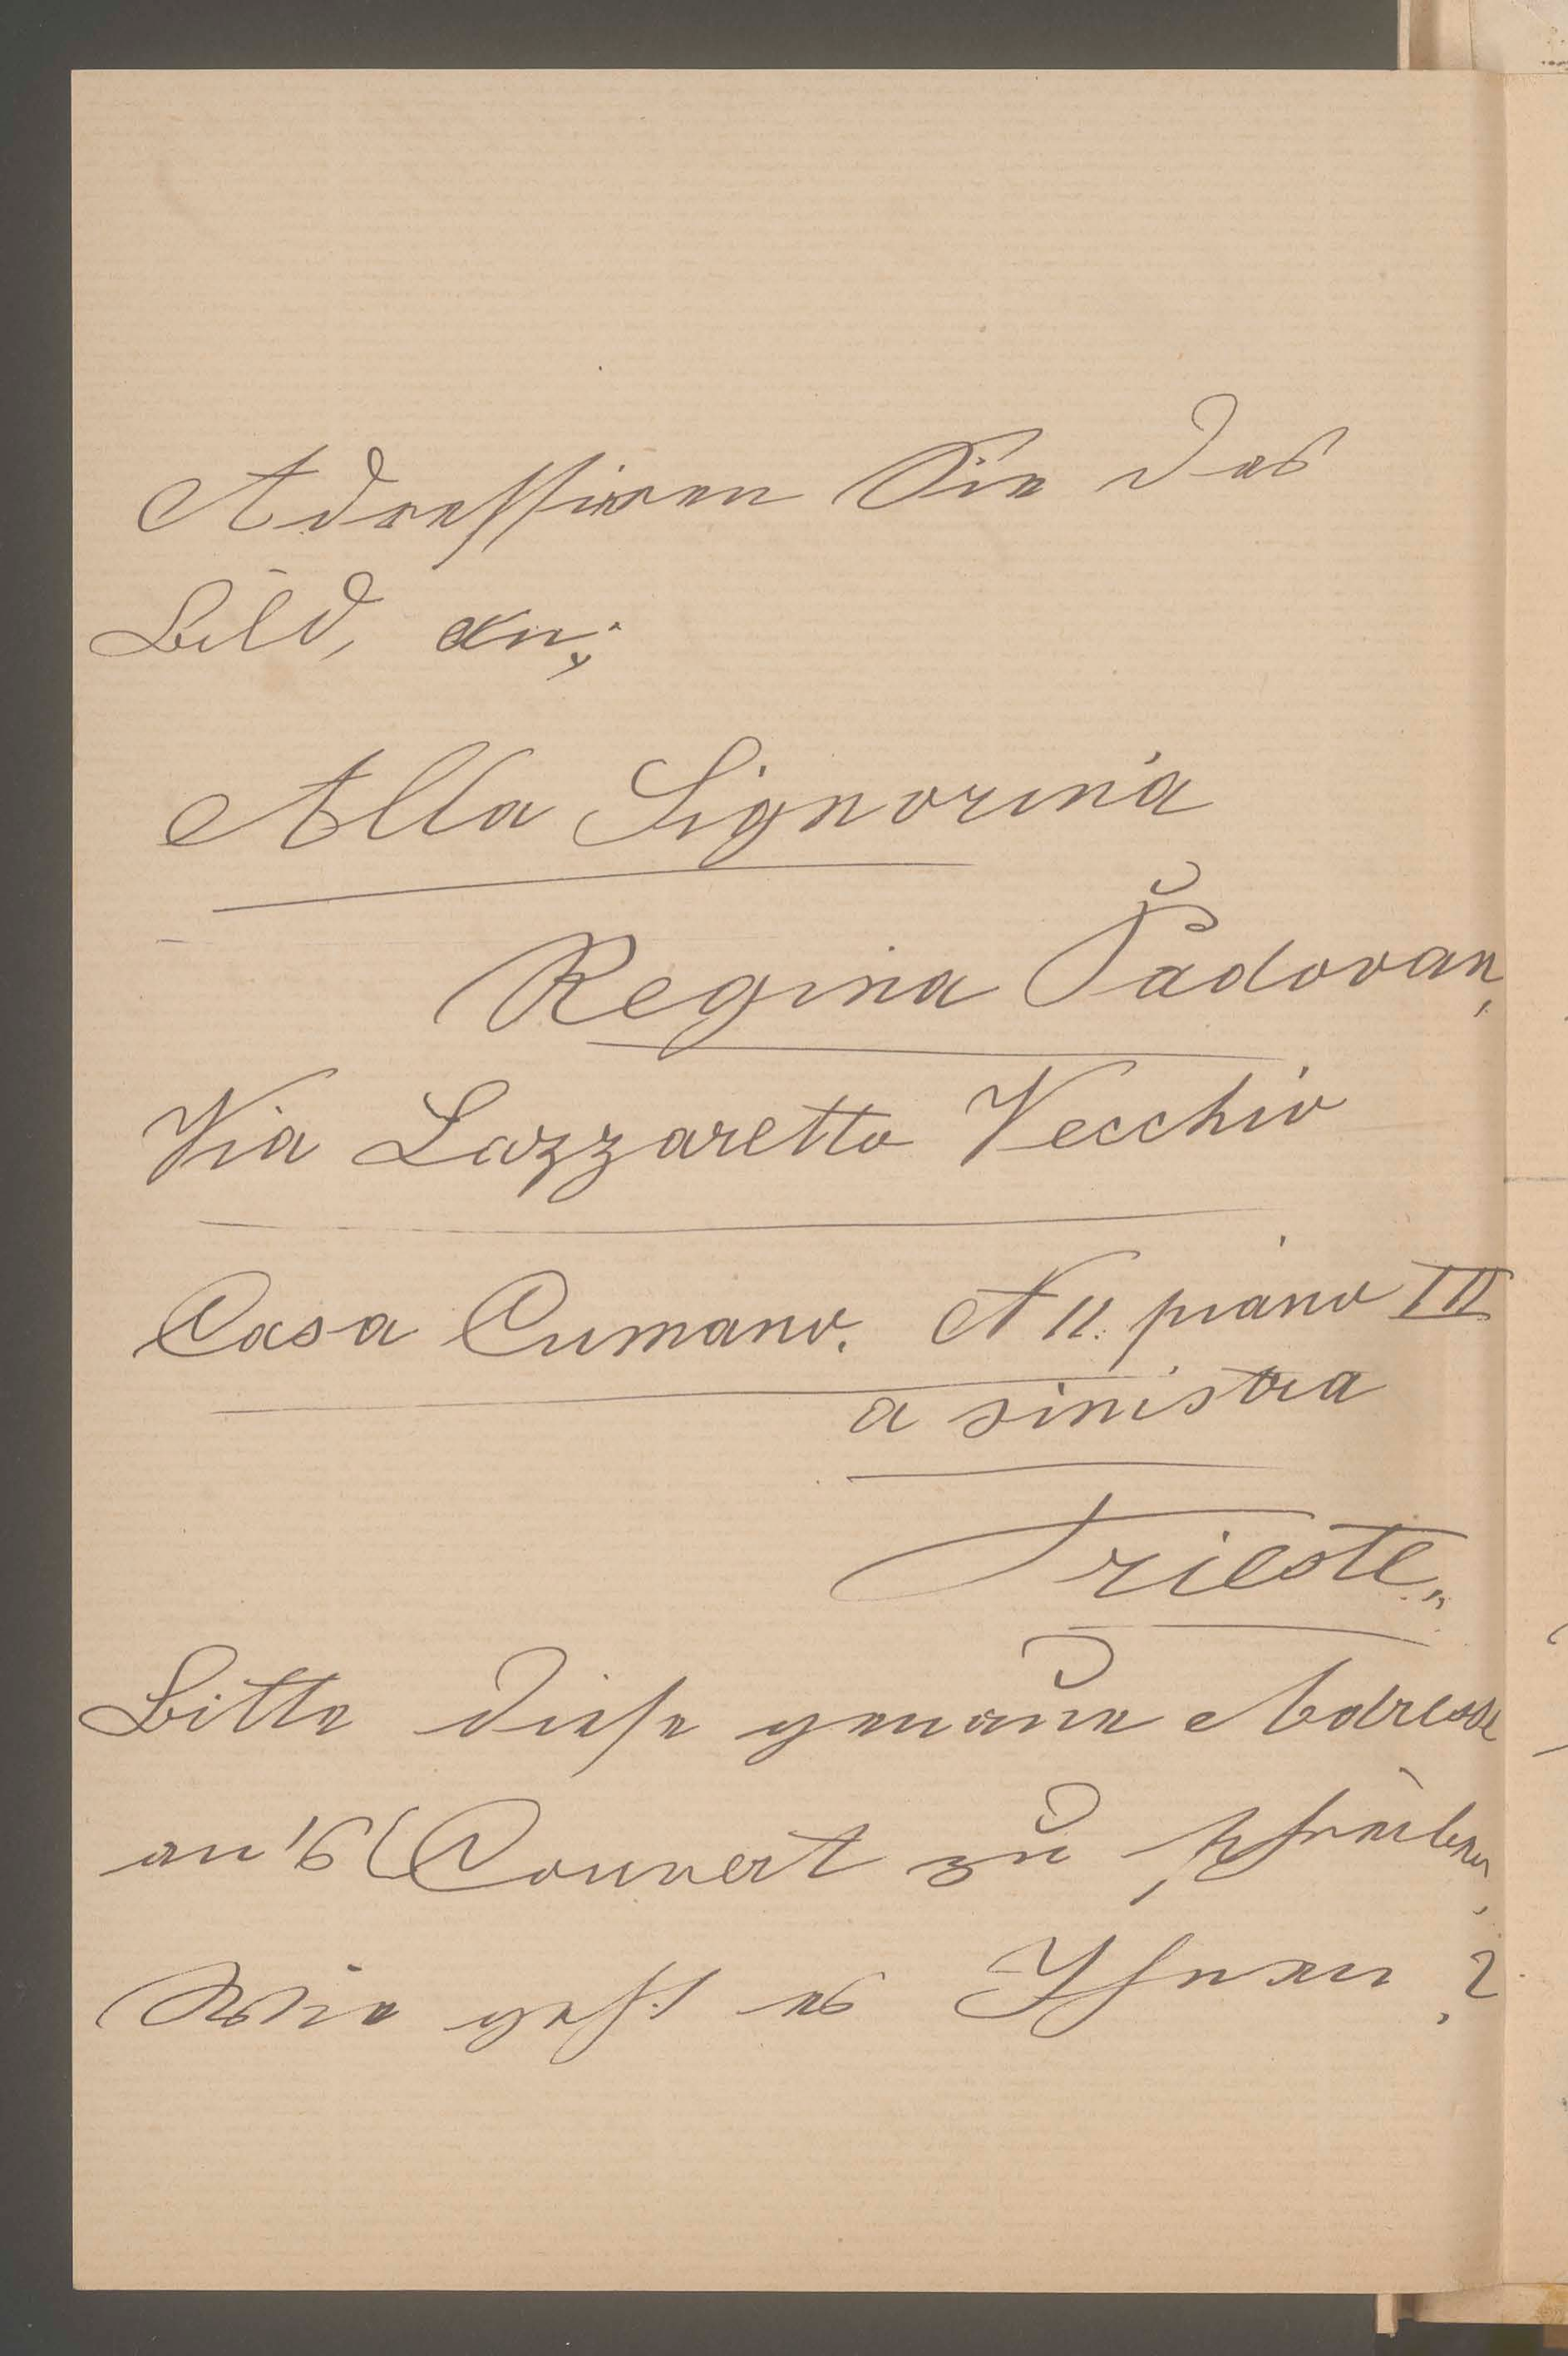 Adressiren Sie das
Bild, an;
Alla Signorina
Regina Padovan,
Via Lazzaretto Vecchio
Casa Cumano. N 11. piano III
a sinistra
Trieste.
Bitte diese genaue Adresse
an's Couvert zu schreiben,
Wie geht es Ihnen?